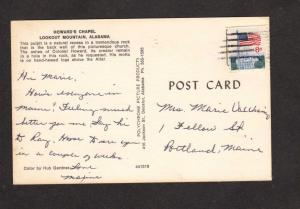 HOWARD'S CHAPEL
LOOKOUT MOUNTAIN, ALABAMA
This pulpit is a natural recess in a tremendous rock
that is the back wall of this picturesque church.
The ashes of Colonel Howard, its creator remain
in a hole, as he requested. His motto
is on hand-hewed logs above the Altar.
Hi Marie,
How's everyone in
maine? Feeling much
better you me. Say hi
to Ray. Hope to see you
in a couple of weeks.
Love
Maxine
Color by Hub Gardner
441519
POLYCHROME PICTURE PRODUCTS
POST CARD
Mrs. Marie
1 Fellow St.
Portland, Maine
8¢